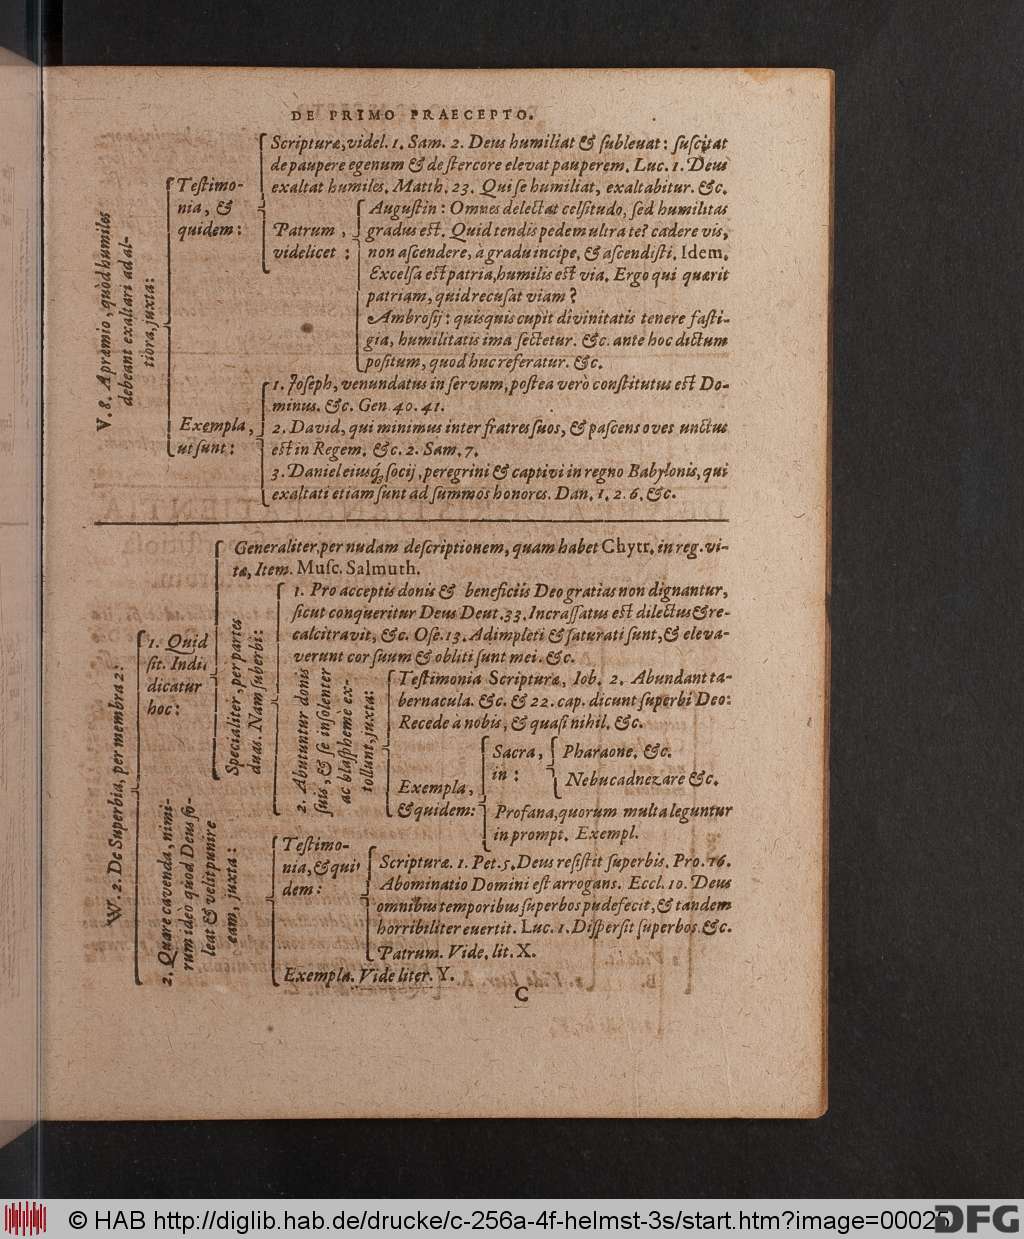 DE PRIMO PRAECEPTO.
V. 8. A præmio, quòd humiles
debeant exaltari ad al-
tiora, juxta:
Teſtimo-
nia, &
quidem:
Scripturæ, videl. 1. Sam. 2. Deus humiliat & ſubleuat: ſuſcitat
de paupere egenum & de ſtercore elevat pauperem. Luc. 1. Deus
exaltat humiles. Matth. 23. Qui ſe humiliat, exaltabitur. &c.
Patrum,
videlicet:
Auguſtin: Omnes delectat celſitudo, ſed humilitas
gradus eſt. Quid tendis pedem ultra te? cadere vis,
non aſcendere, à gradu incipe, & aſcendiſti. Idem.
Excelſa eſt patria, humilis eſt via. Ergo qui quærit
patriam, quid recuſat viam?
Ambroſij: quisquis cupit divinitatis tenere faſti-
gia, humilitatis ima ſectetur. &c. ante hoc dictum
poſitum, quod huc referatur. &c.
Exempla,
ut ſunt:
1. Joſeph, venundatus in ſervum, poſtea verò conſtitutus eſt Do-
minus. &c. Gen. 40. 41.
2. David, qui minimus inter fratres ſuos, & paſcens oves unctus
eſt in Regem. &c. 2. Sam. 7.
3. Daniel eiusq; ſocij, peregrini & captivi in regno Babylonis, qui
exaltati etiam ſunt ad ſummos honores. Dan. 1. 2. 6. &c.
W. 2. De Superbia, per membra 2:
1. Quid
ſit. Indi
dicatur
hoc:
Generaliter, per nudam deſcriptionem, quam habet Chytr. in reg. vi-
tæ, Item. Muſc. Salmuth.
Specialiter, per partes
duas. Nam ſuberbi:
1. Pro acceptis donis & beneficiis Deo gratias non dignantur,
ſicut conqueritur Deus Deut. 33. Incraſſatus eſt dilectus & re-
calcitravit, &c. Oſe. 13. Adimpleti & ſaturati ſunt, & eleva-
verunt cor ſuum & obliti ſunt mei. &c.
2. Abutuntur donis
ſuis, & ſe inſolenter
ac blaſphemè ex-
tollunt, juxta:
Teſtimonia Scripturæ, Iob. 2. Abundant ta-
bernacula. &c. & 22. cap. dicunt ſuperbi Deo:
Recede à nobis, & quaſi nihil. &c.
Exempla,
& quidem:
Sacra,
in:
Pharaone. &c.
Nebucadnezare &c.
Profana, quorum multa leguntur
in prompt. Exempl.
2. Quare cavenda, nimi-
rum ideò quòd Deus ſo-
leat & velit punire
eam, juxta:
Teſtimo-
nia, & qui
dem:
Scripturæ. 1. Pet. 5. Deus reſiſtit ſuperbis. Pro. 16.
Abominatio Domini eſt arrogans. Eccl. 10. Deus
omnibus temporibus ſuperbos pudefecit, & tandem
horribiliter euertit. Luc. 1. Diſperſit ſuperbos. &c.
Patrum. Vide, lit. X.
Exempla. Vide liter. Y.
C
© HAB http://diglib.hab.de/drucke/c-256a-4f-helmst-3s/start.htm?image=00025
DFG